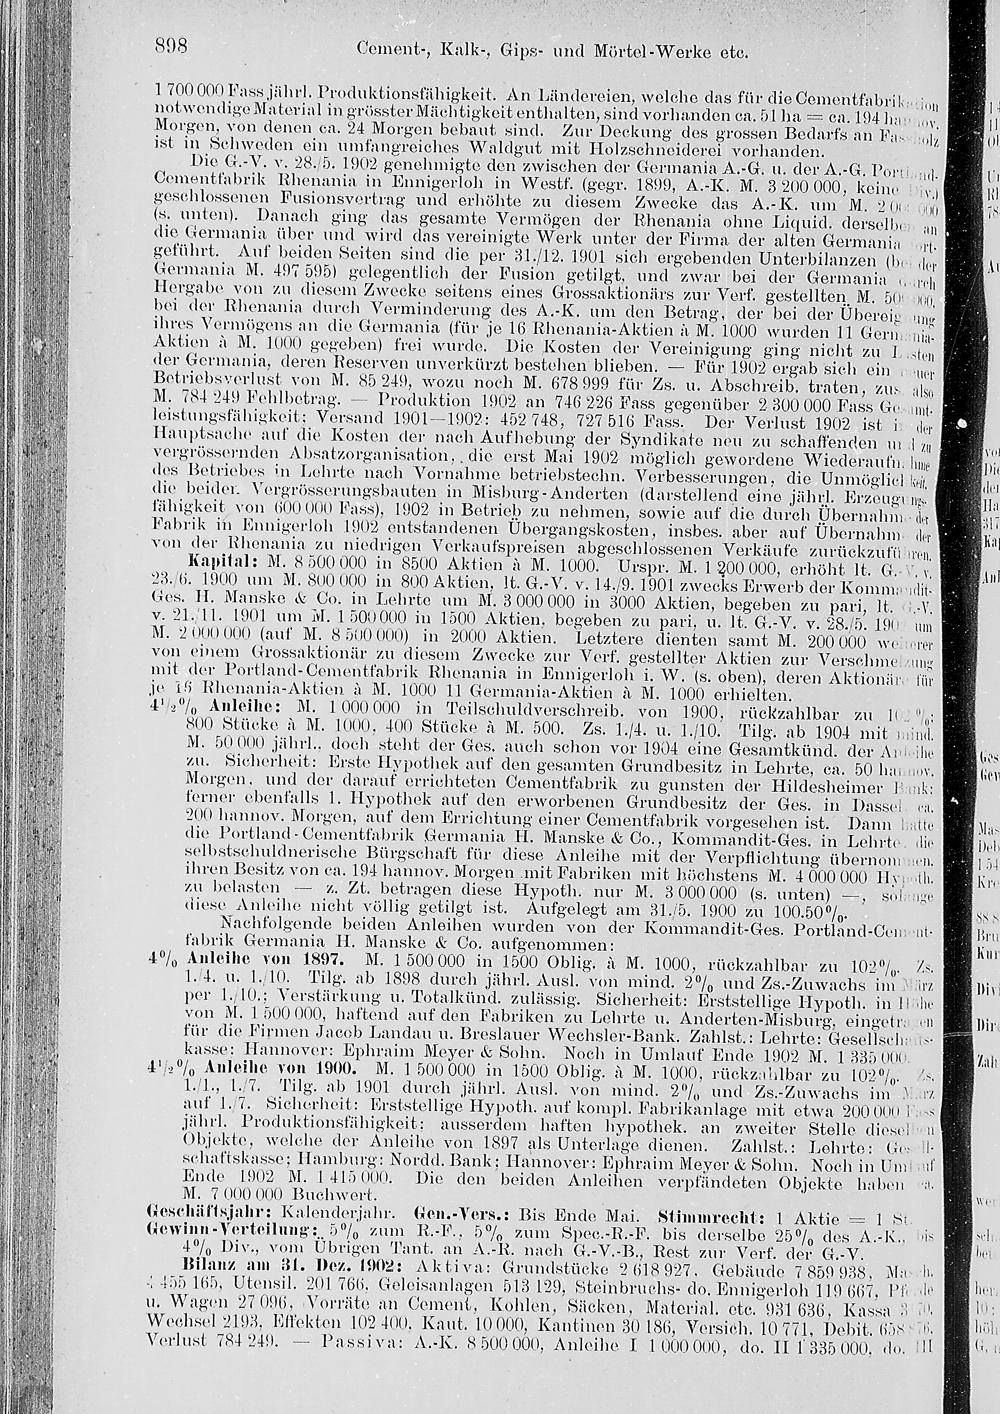 898
Cement-, Kalk-, Gips- und Mörtel-Werke etc.
1 700 000 Fass jährl. Produktionsfähigkeit. An Ländereien, welche das für die Cementfabrik
notwendige Material in grösster Mächtigkeit enthalten, sind vorhanden ca. 51 ha = ca. 194
Morgen, von denen ca. 24 Morgen bebaut sind. Zur Deckung des grossen Bedarfs an
ist in Schweden ein umfangreiches Waldgut mit Holzschneiderei vorhanden.
Die G.-V. v. 28./5. 1902 genehmigte den zwischen der Germania A.-G. u. der A.-G.
Cementfabrik Rhenania in Ennigerloh in Westf. (gegr. 1899, A.-K. M. 3 200 000, keine Div.)
geschlossenen Fusionsvertrag und erhöhte zu diesem Zwecke das A.-K. um M. 2 000 000
(s. unten). Danach ging das gesamte Vermögen der Rhenania ohne Liquid. derselben an
die Germania über und wird das vereinigte Werk unter der Firma der alten Germania
geführt. Auf beiden Seiten sind die per 31./12. 1901 sich ergebenden Unterbilanzen (bei der
Germania M. 497 595) gelegentlich der Fusion getilgt, und zwar bei der Germania durch
Hergabe von zu diesem Zwecke seitens eines Grossaktionärs zur Verf. gestellten M.
bei der Rhenania durch Verminderung des A.-K. um den Betrag, der bei der Übereignung
ihres Vermögens an die Germania (für je 16 Rhenania-Aktien à M. 1000 wurden 11 Germania-
Aktien à M. 1000 gegeben) frei wurde. Die Kosten der Vereinigung ging nicht zu Lasten
der Germania, deren Reserven unverkürzt bestehen blieben. — Für 1902 ergab sich ein
Betriebsverlust von M. 85 249, wozu noch M. 678 999 für Zs. u. Abschreib. traten, zus. also
M. 784 249 Fehlbetrag. — Produktion 1902 an 746 226 Fass gegenüber 2 300 000 Fass Gesamt-
leistungsfähigkeit; Versand 1901—1902: 452 748, 727 516 Fass. Der Verlust 1902 ist in der
Hauptsache auf die Kosten der nach Aufhebung der Syndikate neu zu schaffenden und zu
vergrössernden Absatzorganisation, die erst Mai 1902 möglich gewordene Wiederaufnahme
des Betriebes in Lehrte nach Vornahme betriebstechn. Verbesserungen, die Unmöglichkeit,
die beiden Vergrösserungsbauten in Misburg-Anderten (darstellend eine jährl. Erzeugungs-
fähigkeit von 600 000 Fass), 1902 in Betrieb zu nehmen, sowie auf die durch Übernahme der
Fabrik in Ennigerloh 1902 entstandenen Übergangskosten, insbes. aber auf Übernahme der
von der Rhenania zu niedrigen Verkaufspreisen abgeschlossenen Verkäufe zurückzuführen.
Kapital: M. 8 500 000 in 8500 Aktien à M. 1000. Urspr. M. 1 200 000, erhöht lt. G.-V. v.
23./6. 1900 um M. 800 000 in 800 Aktien, lt. G.-V. v. 14./9. 1901 zwecks Erwerb der Kommandit-
Ges. H. Manske & Co. in Lehrte um M. 3 000 000 in 3000 Aktien, begeben zu pari, lt. G.-V.
v. 21./11. 1901 um M. 1 500 000 in 1500 Aktien, begeben zu pari, u. lt. G.-V. v. 28./5. 1902 um
M. 2 000 000 (auf M. 8 500 000) in 2000 Aktien. Letztere dienten samt M. 200 000 weiterer
von einem Grossaktionär zu diesem Zwecke zur Verf. gestellter Aktien zur Verschmelzung
mit der Portland-Cementfabrik Rhenania in Ennigerloh i. W. (s. oben), deren Aktionäre für
je 16 Rhenania-Aktien à M. 1000 11 Germania-Aktien à M. 1000 erhielten.
4½% Anleihe: M. 1 000 000 in Teilschuldverschreib. von 1900, rückzahlbar zu 102%;
800 Stücke à M. 1000, 400 Stücke à M. 500. Zs. 1./4. u. 1./10. Tilg. ab 1904 mit mind.
M. 50 000 jährl., doch steht der Ges. auch schon vor 1904 eine Gesamtkünd. der Anleihe
zu. Sicherheit: Erste Hypothek auf den gesamten Grundbesitz in Lehrte, ca. 50 hannov.
Morgen, und der darauf errichteten Cementfabrik zu gunsten der Hildesheimer Bank;
ferner ebenfalls 1. Hypothek auf den erworbenen Grundbesitz der Ges. in Dassel ca.
200 hannov. Morgen, auf dem Errichtung einer Cementfabrik vorgesehen ist. Dann hatte
die Portland-Cementfabrik Germania H. Manske & Co., Kommandit-Ges. in Lehrte die
selbstschuldnerische Bürgschaft für diese Anleihe mit der Verpflichtung übernommen,
ihren Besitz von ca. 194 hannov. Morgen mit Fabriken mit höchstens M. 4 000 000 Hypoth.
zu belasten — z. Zt. betragen diese Hypoth. nur M. 3 000 000 (s. unten) —, solange
diese Anleihe nicht völlig getilgt ist. Aufgelegt am 31./5. 1900 zu 100.50%.
Nachfolgende beiden Anleihen wurden von der Kommandit-Ges. Portland-Cement-
fabrik Germania H. Manske & Co. aufgenommen:
4% Anleihe von 1897. M. 1 500 000 in 1500 Oblig. à M. 1000, rückzahlbar zu 102%. Zs.
1./4. u. 1./10. Tilg. ab 1898 durch jährl. Ausl. von mind. 2% und Zs.-Zuwachs im März
per 1./10.; Verstärkung u. Totalkünd. zulässig. Sicherheit: Erststellige Hypoth. in Höhe
von M. 1 500 000, haftend auf den Fabriken zu Lehrte u. Anderten-Misburg, eingetragen
für die Firmen Jacob Landau u. Breslauer Wechsler-Bank. Zahlst.: Lehrte: Gesellschafts-
kasse; Hannover: Ephraim Meyer & Sohn. Noch in Umlauf Ende 1902 M. 1 335 000.
4½% Anleihe von 1900. M. 1 500 000 in 1500 Oblig. à M. 1000, rückzahlbar zu 102%. Zs.
1./1., 1./7. Tilg. ab 1901 durch jährl. Ausl. von mind. 2% und Zs.-Zuwachs im März
auf 1./7. Sicherheit: Erststellige Hypoth. auf kompl. Fabrikanlage mit etwa 200 000 Fass
jährl. Produktionsfähigkeit; ausserdem haften hypothek. an zweiter Stelle dieselben
Objekte, welche der Anleihe von 1897 als Unterlage dienen. Zahlst.: Lehrte: Gesell-
schaftskasse; Hamburg: Nordd. Bank; Hannover: Ephraim Meyer & Sohn. Noch in Umlauf
Ende 1902 M. 1 415 000. Die den beiden Anleihen verpfändeten Objekte haben ca.
M. 7 000 000 Buchwert.
Geschäftsjahr: Kalenderjahr. Gen.-Vers.: Bis Ende Mai. Stimmrecht: 1 Aktie = 1 St.
Gewinn-Verteilung: 5% zum R.-F., 5% zum Spec.-R.-F. bis derselbe 25% des A.-K., bis
4% Div., vom Übrigen Tant. an A.-R. nach G.-V.-B., Rest zur Verf. der G.-V.
Bilanz am 31. Dez. 1902: Aktiva: Grundstücke 2 618 927, Gebäude 7 859 938, Masch.
455 165, Utensil. 201 766, Geleisanlagen 513 129, Steinbruchs- do. Ennigerloh 119 667, Pferde
u. Wagen 27 096, Vorräte an Cement, Kohlen, Säcken, Material. etc. 931 636, Kassa
Wechsel 2193, Effekten 102 400, Kaut. 10 000, Kantinen 30 186, Versich. 10 771, Debit.
Verlust 784 249. — Passiva: A.-K. 8 500 000, Anleihe I 1 000 000, do. II 1 335 000, do. III